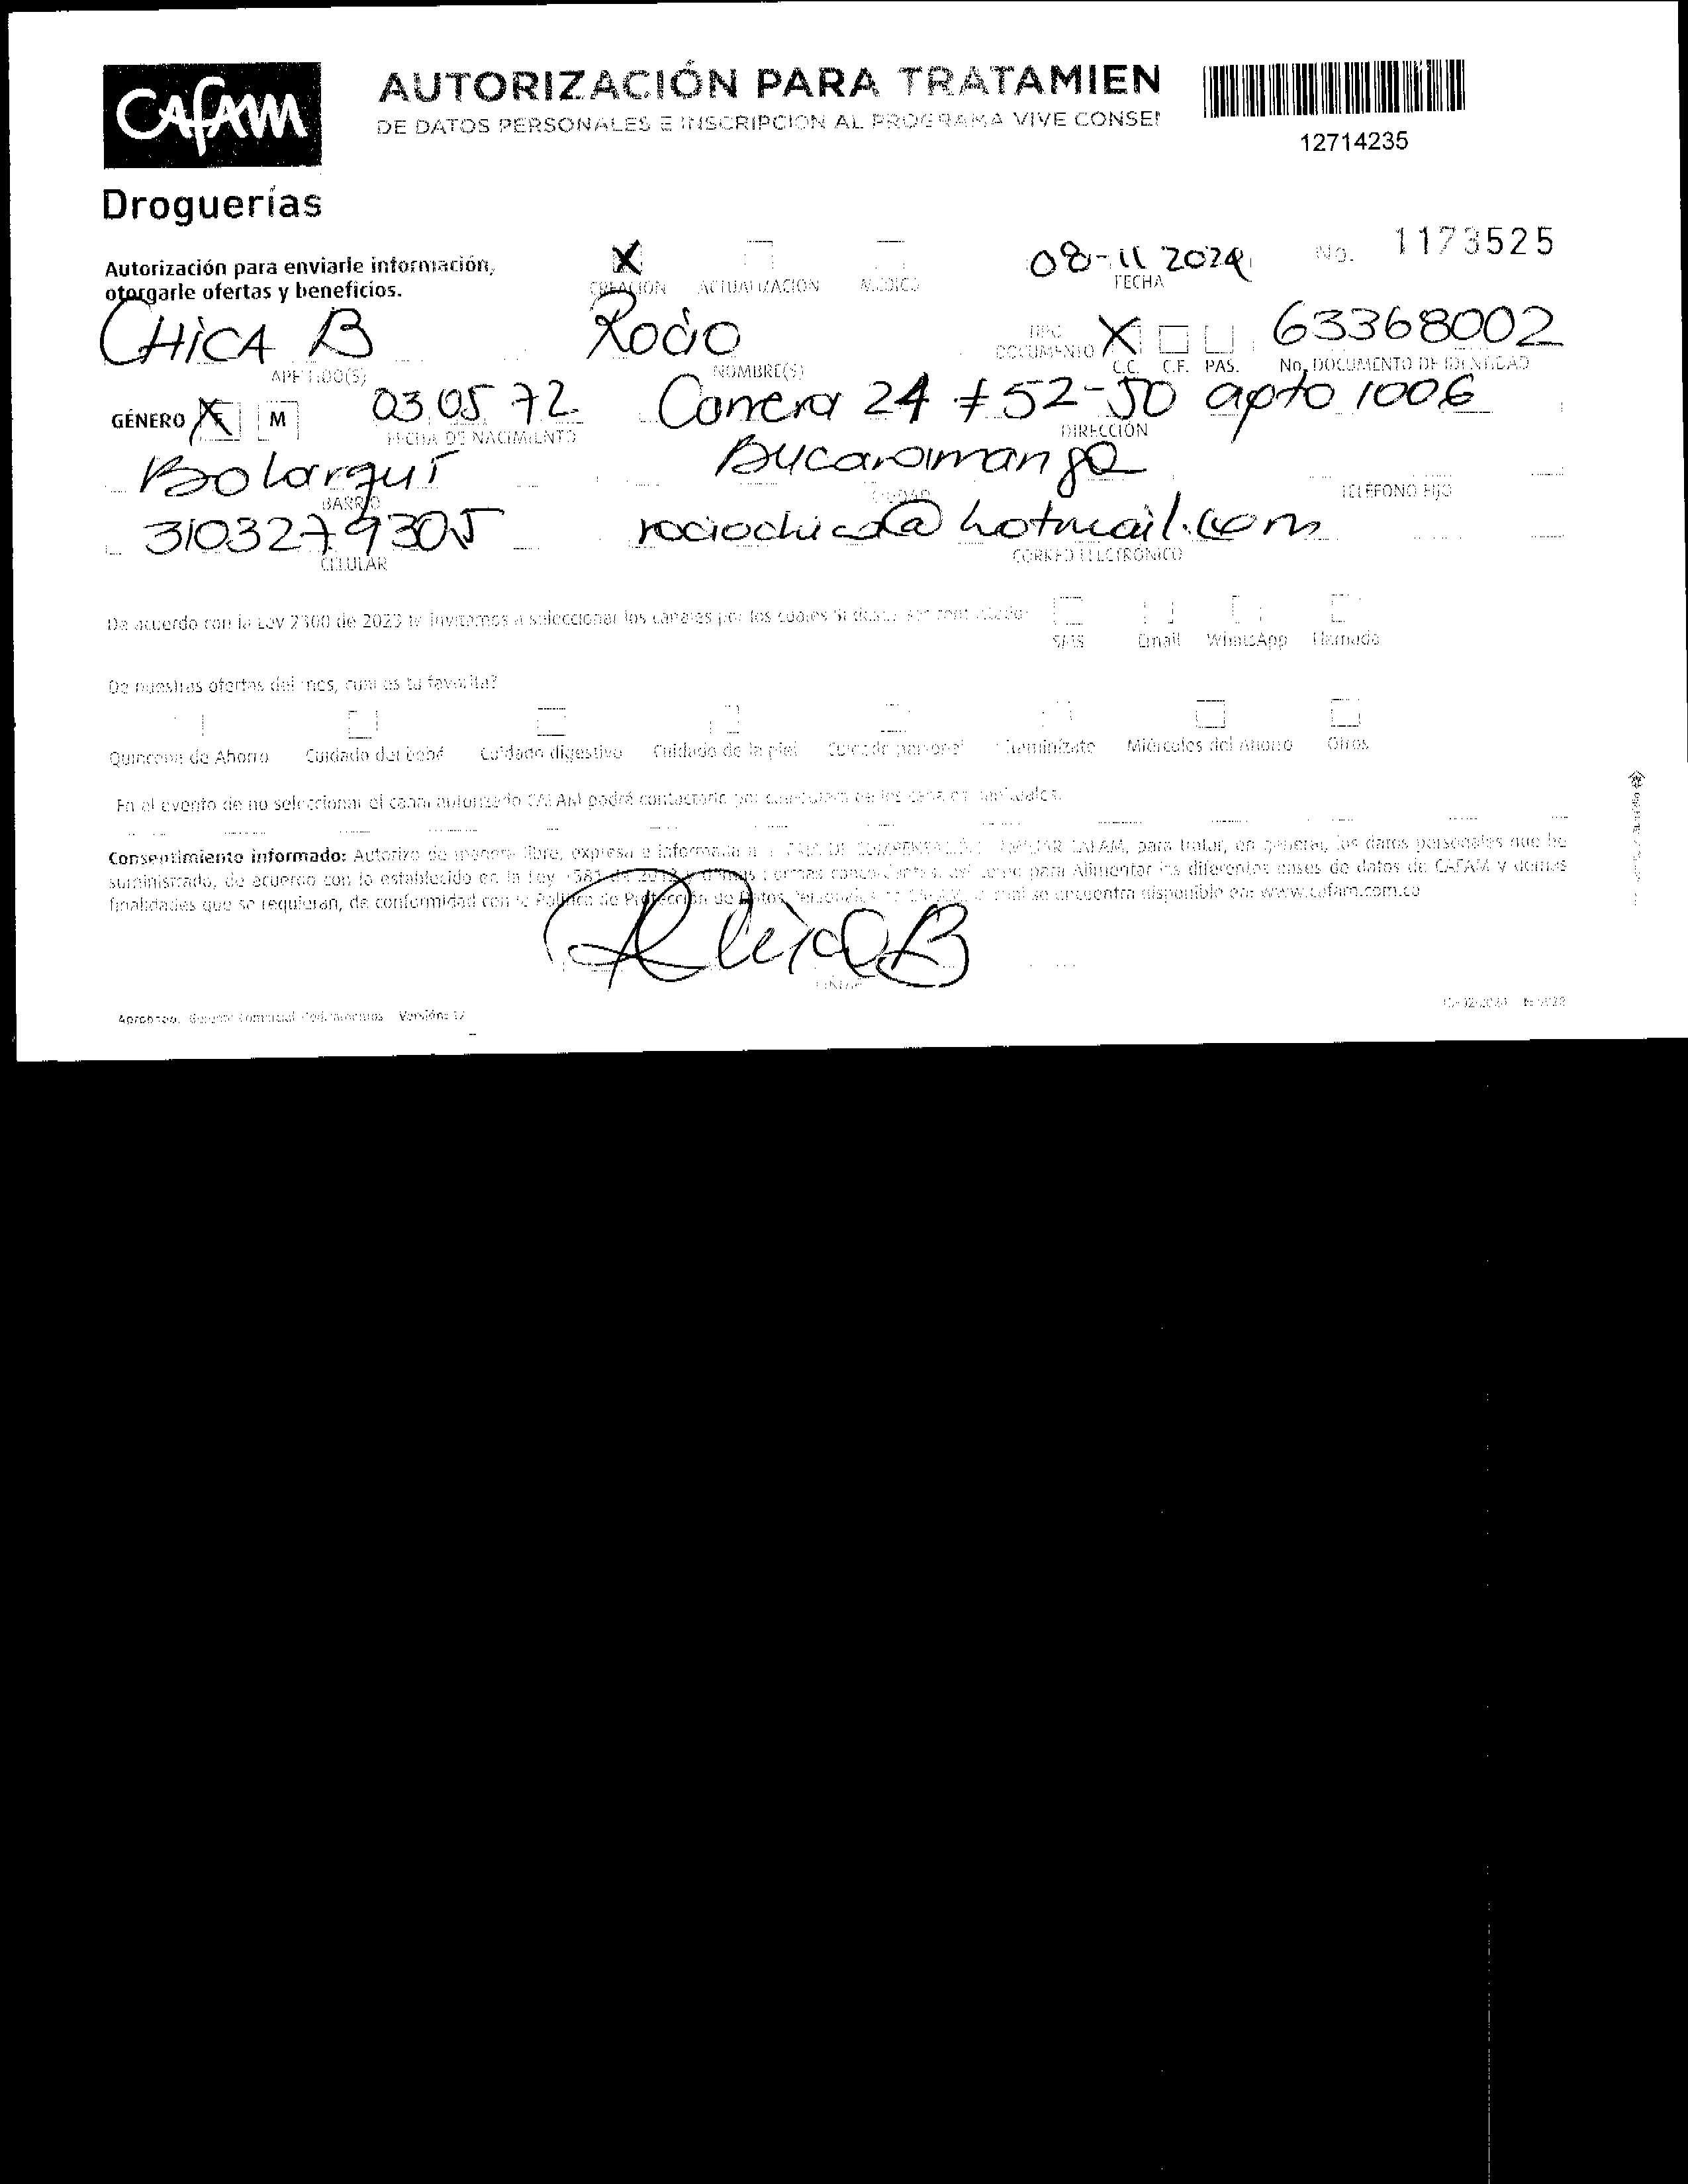 CAFAM
Droguerías
AUTORIZACIÓN PARA TRATAMIEN
DE DATOS PERSONALES E INSCRIPCION AL PROGRAMA VIVE CONSE
12714235
Autorización para enviarle información,
otorgarle ofertas y beneficios.
X
CREACION ACTUALIZACION MEDICO
08-11 2024
FECHA
No. 1173525
CHICA B
APELLIDO(S)
Rocio
NOMBRE(S)
TIPO
DOCUMENTO
X
C.C. C.E. PAS.
63368002
No. DOCUMENTO DE IDENTIDAD
GÉNERO X F M
03 05 72
FECHA DE NACIMIENTO
Carrera 24 # 52-50 apto 1006
DIRECCIÓN
Bolarqui
BARRIO
Bucaramanga
CIUDAD
TELÉFONO FIJO
3103279305
CELULAR
rociochica@hotmail.com
CORREO ELECTRÓNICO
De acuerdo con la Ley 2300 de 2023 te invitamos a seleccionar los canales por los cuales Si desea ser contactado:
SMS Email WhatsApp Llamada
De nuestras ofertas del mes, cual es tu favorita?
Quincena de Ahorro Cuidado del bebé Cuidado digestivo Cuidado de la piel Cuidado personal Miércoles del Ahorro Otros
En el evento de no seleccionar el canal autorizado CAFAM podrá contactarlo por cualquiera de los canales
Consentimiento informado: Autorizo de manera libre, expresa e informada a CAJA DE COMPENSACIÓN FAMILIAR CAFAM, para tratar, en general, los datos personales que he
suministrado, de acuerdo con lo establecido en la Ley 1581 de 2012 y demás normas para Alimentar las diferentes bases de datos de CAFAM y demás
finalidades que se requieran, de conformidad con la Política de Protección de Datos Personales de CAFAM, la cual se encuentra disponible en: www.cafam.com.co
RChicaB
FIRMA
Aprobado: Gerente Comercial Medicamentos Versión: 17